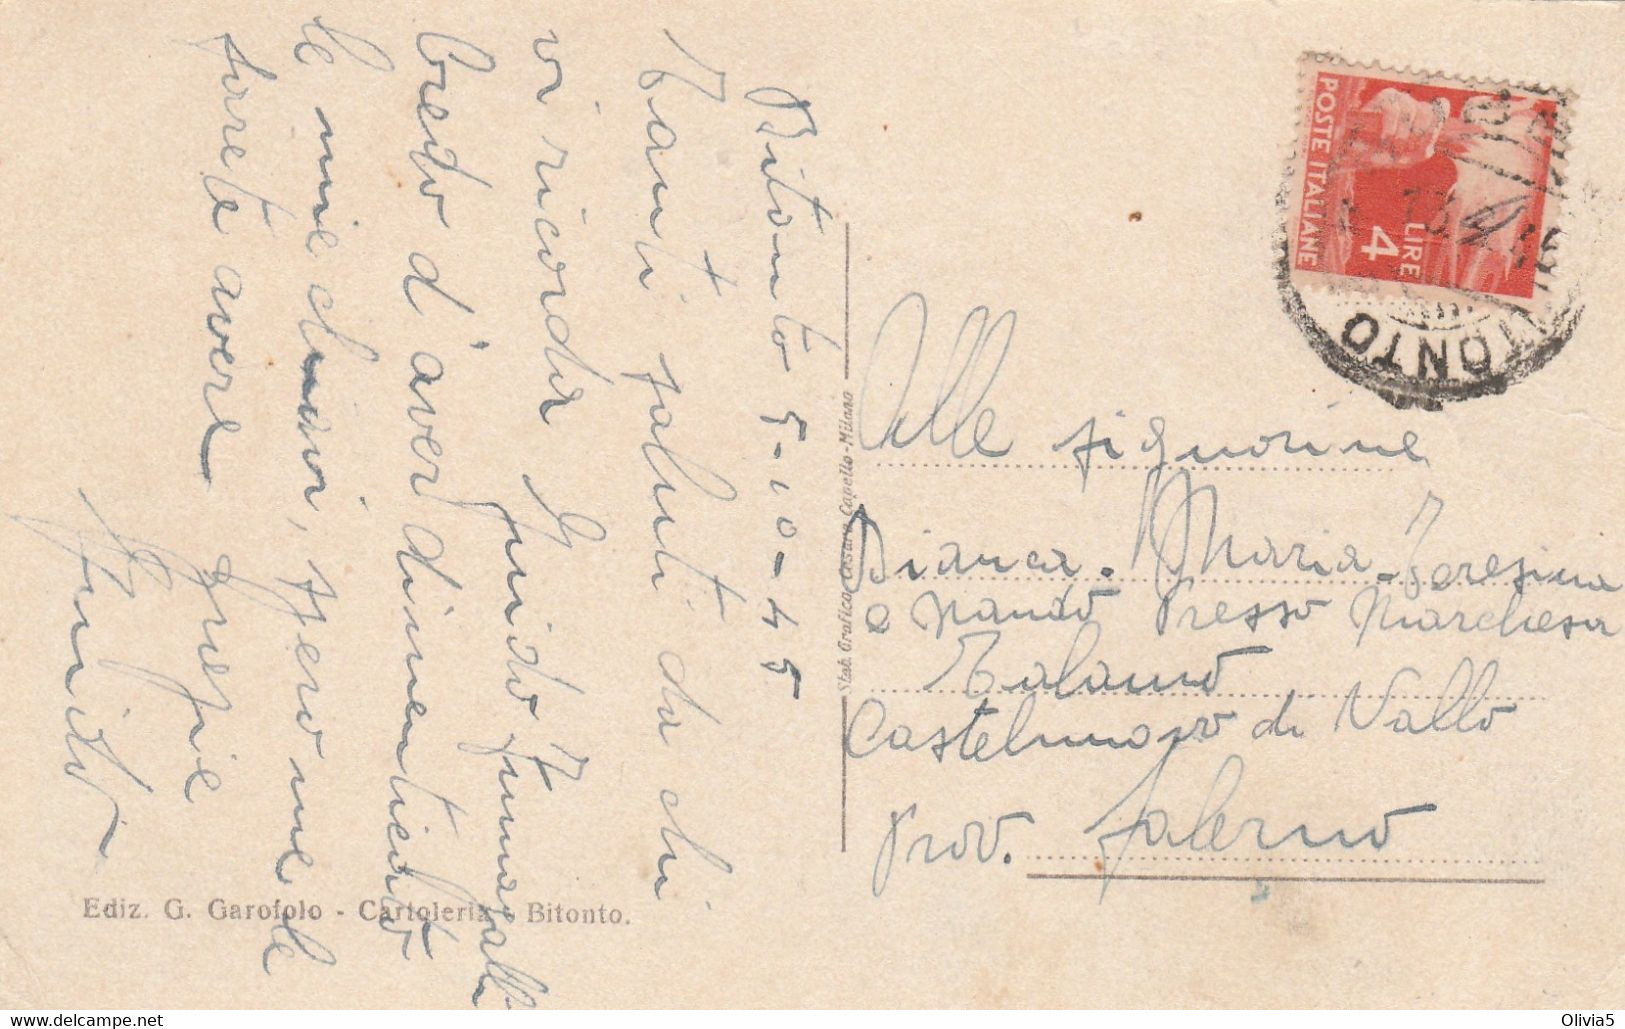 Bitonto 5-10-45
Tanti saluti da chi
vi ricorda Guido
credo d'aver dimenticato
le mie chiavi, spero me le
farete avere grazie
Guido
Ediz. G. Garofolo - Cartoleria - Bitonto.
Stab. Grafico Cesare Capello-Milano
POSTE ITALIANE
LIRE
4
BITONTO
Alle signorine
Bianca. Maria. Teresina
e Nando Presso Marchesa
Talamo
Castelnuovo di Vallo
Prov. Salerno
Olivia5